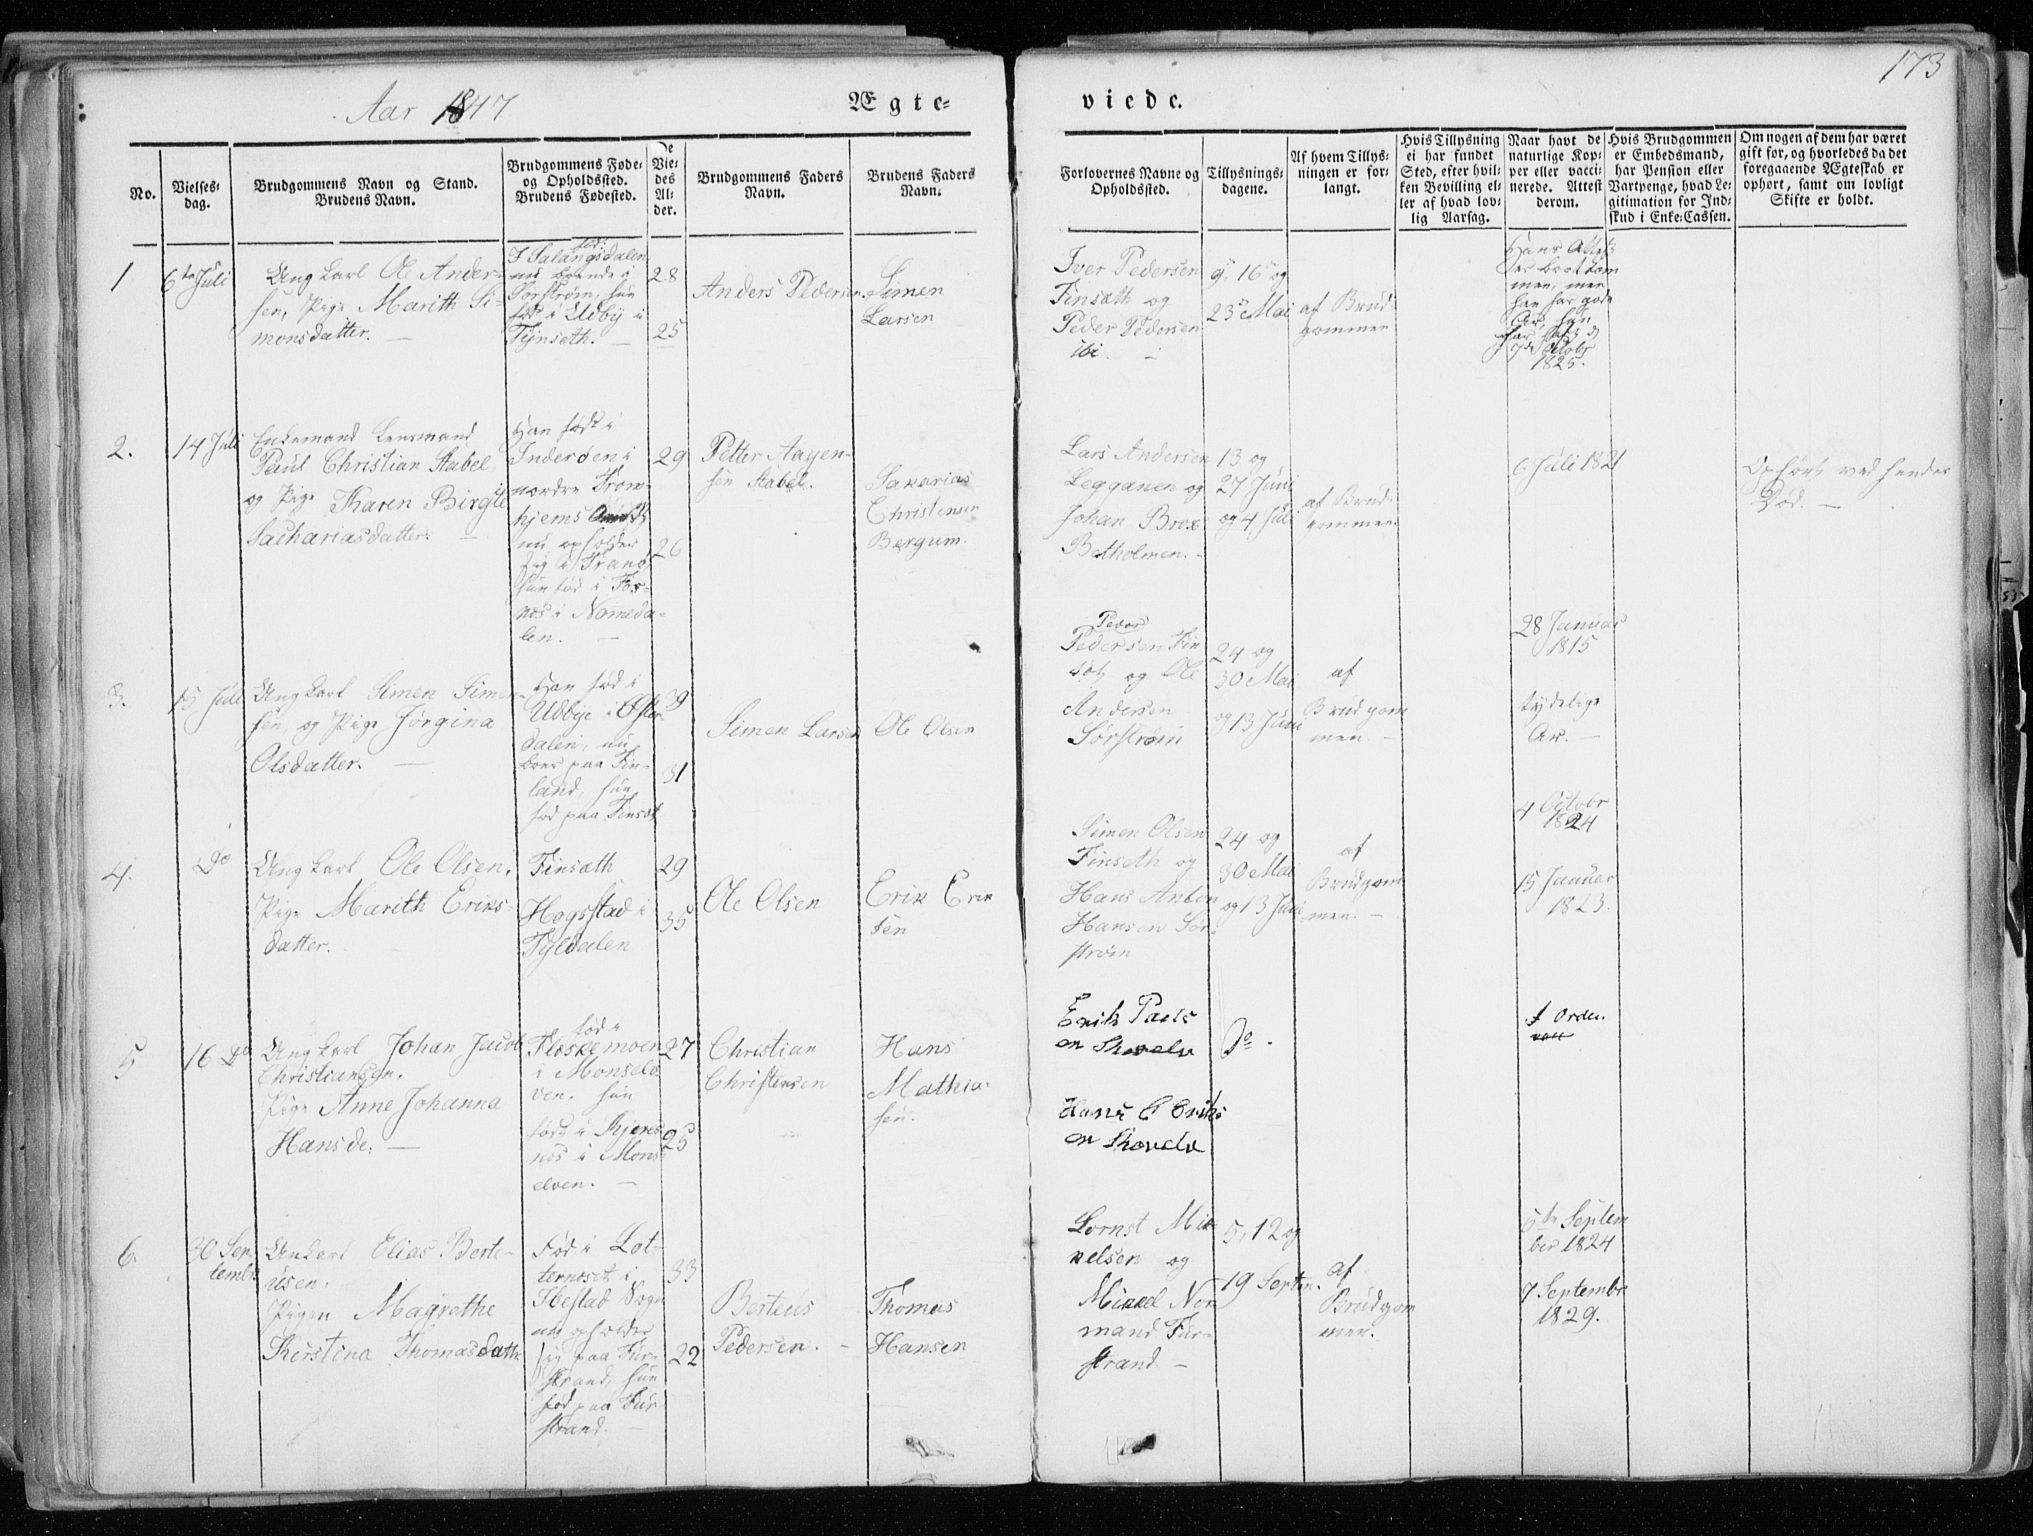 173
Aar 1847
Ægte=
viede.
No.
Vielses=
dag.
Brudgommens Navn og Stand.
Brudens Navn.
Brudgommens Føde=
og Opholdssted.
Brudens Fødested.
De
Vie=
des
Al=
der.
Brudgommens Faders
Navn.
Brudens Faders
Navn.
Forlovernes Navne og
Opholdssted.
Tillysnings=
dagene.
Af hvem Tillys=
ningen er for=
langt.
Hvis Tillysning
ei har fundet
Sted, efter hvil=
ken Bevilling el=
ler af hvad lov=
lig Aarsag.
Naar havt de
naturlige Kop=
per eller vacci=
nerede. Attest
derom.
Hvis Brudgommen
er Embedsmand,
har Pension eller
Vartpenge, hvad Le=
gitimation for Ind=
skud i Enke=Cassen.
Om nogen af dem har været
gift før, og hvorledes da det
foregaaende Ægteskab er
ophørt, samt om lovligt
Skifte er holdt.
1
6te Juli
Ung Karl Ole Ander=
sen, Pige Marith Si=
monsdatter. —
fød:
I Salangsdalen
nu boende i
Sørstrøm, hun
fød i Udby i
Tynseth. —
28
25
Anders Pedersen.
Simen
Larsen
Iver Pedersen
Finsæth og
Peder Pedersen
ibi. —
9, 16 og
23 Mai
af Brud=
gommen
Hans Attest
er bort kom
men, men
han har gode
Ar, hun
har Att d
7de Octobr
1825.
2.
14 Juli
Enkemand Lensmand
Paul Christian Stabel
og Pige Karen Birgte
Sachariasdatter. —
Han født i
Inderøen i
nordre Tron=
hjems Amt
nu opholder
sig i Tranø,
hun fød i Fos=
nes i Nomeda=
len. —
29
26
Petter Aagen=
sen Stabel.
Sakarias
Christensen
Bergum.
Lars Andersen
Legganen og
Johan Brox
Botholmen. -
13 og
27 Juni
og 4 Juli
af Brud=
gommen.
6 Juli 1821
Ophørt ved hendes
Død. —
3.
15 Juli
Ung Karl Simen Simen=
sen og Pige Jørgina
Olsdatter. —
Han fød i
Udbye i Øster
dalen, nu
boer paa Fin=
land, hun
fød paa Finsæt
39
31
Simen Larsen
Ole Olsen
Peder
Pedersen Fin
sæt og Ole
Andersen
Sørstrøm
24 og
30 Mai
og 13 Juni
af
Brudgom
men. —
28 Januar
1815
tydelige
Ar. —
4.
Do
Ung Karl Ole Olsen.
Pige Marith Eriks=
datter.
Finsæth
Hogsstad i
Tyldalen
29
35
Ole Olsen
Erik Erik
sen
Simen Olsen
Finseth og
Hans Anton
Hansen Sør=
strøm
24 og
30 Mai
og 13 Juni
af
Brudgom
men. —
4 Octobr
1824
15 Januar
1823.
5
16 Do
Ung Karl Johan Jacob
Christiansen.
Pige Anne Johanna
Hansdr. —
fød i
Fleskemoen
i Monselv
ven. hun
født i Kjeres
nes i Mons
elven. —
27
25
Christian
Christensen
Hans
Mathia=
sen.
Erik Paels
en Skovelv
Hans O Eriks
en Skovelv
Do.
I Orden.
6.
30 Sep=
tembr
Unkarl Elias Berte=
usen.
Pigen Magrethe
Kerstina Thomasdattr
Fød i Lot=
ternæset i
Ibestad Sogn
nu opholder
sig paa Fur=
strand, hun
fød paa Fur
strand. —
33
22
Berteus
Pedersen. —
Thomas
Hansen
Lornst Mik
kelsen og
Mikkel Nor
mand Fur=
strand. —
5, 12 og
19 Septm.
af
Brudgom
men.
5te Septem
ber 1824
7 Septembr
1829.